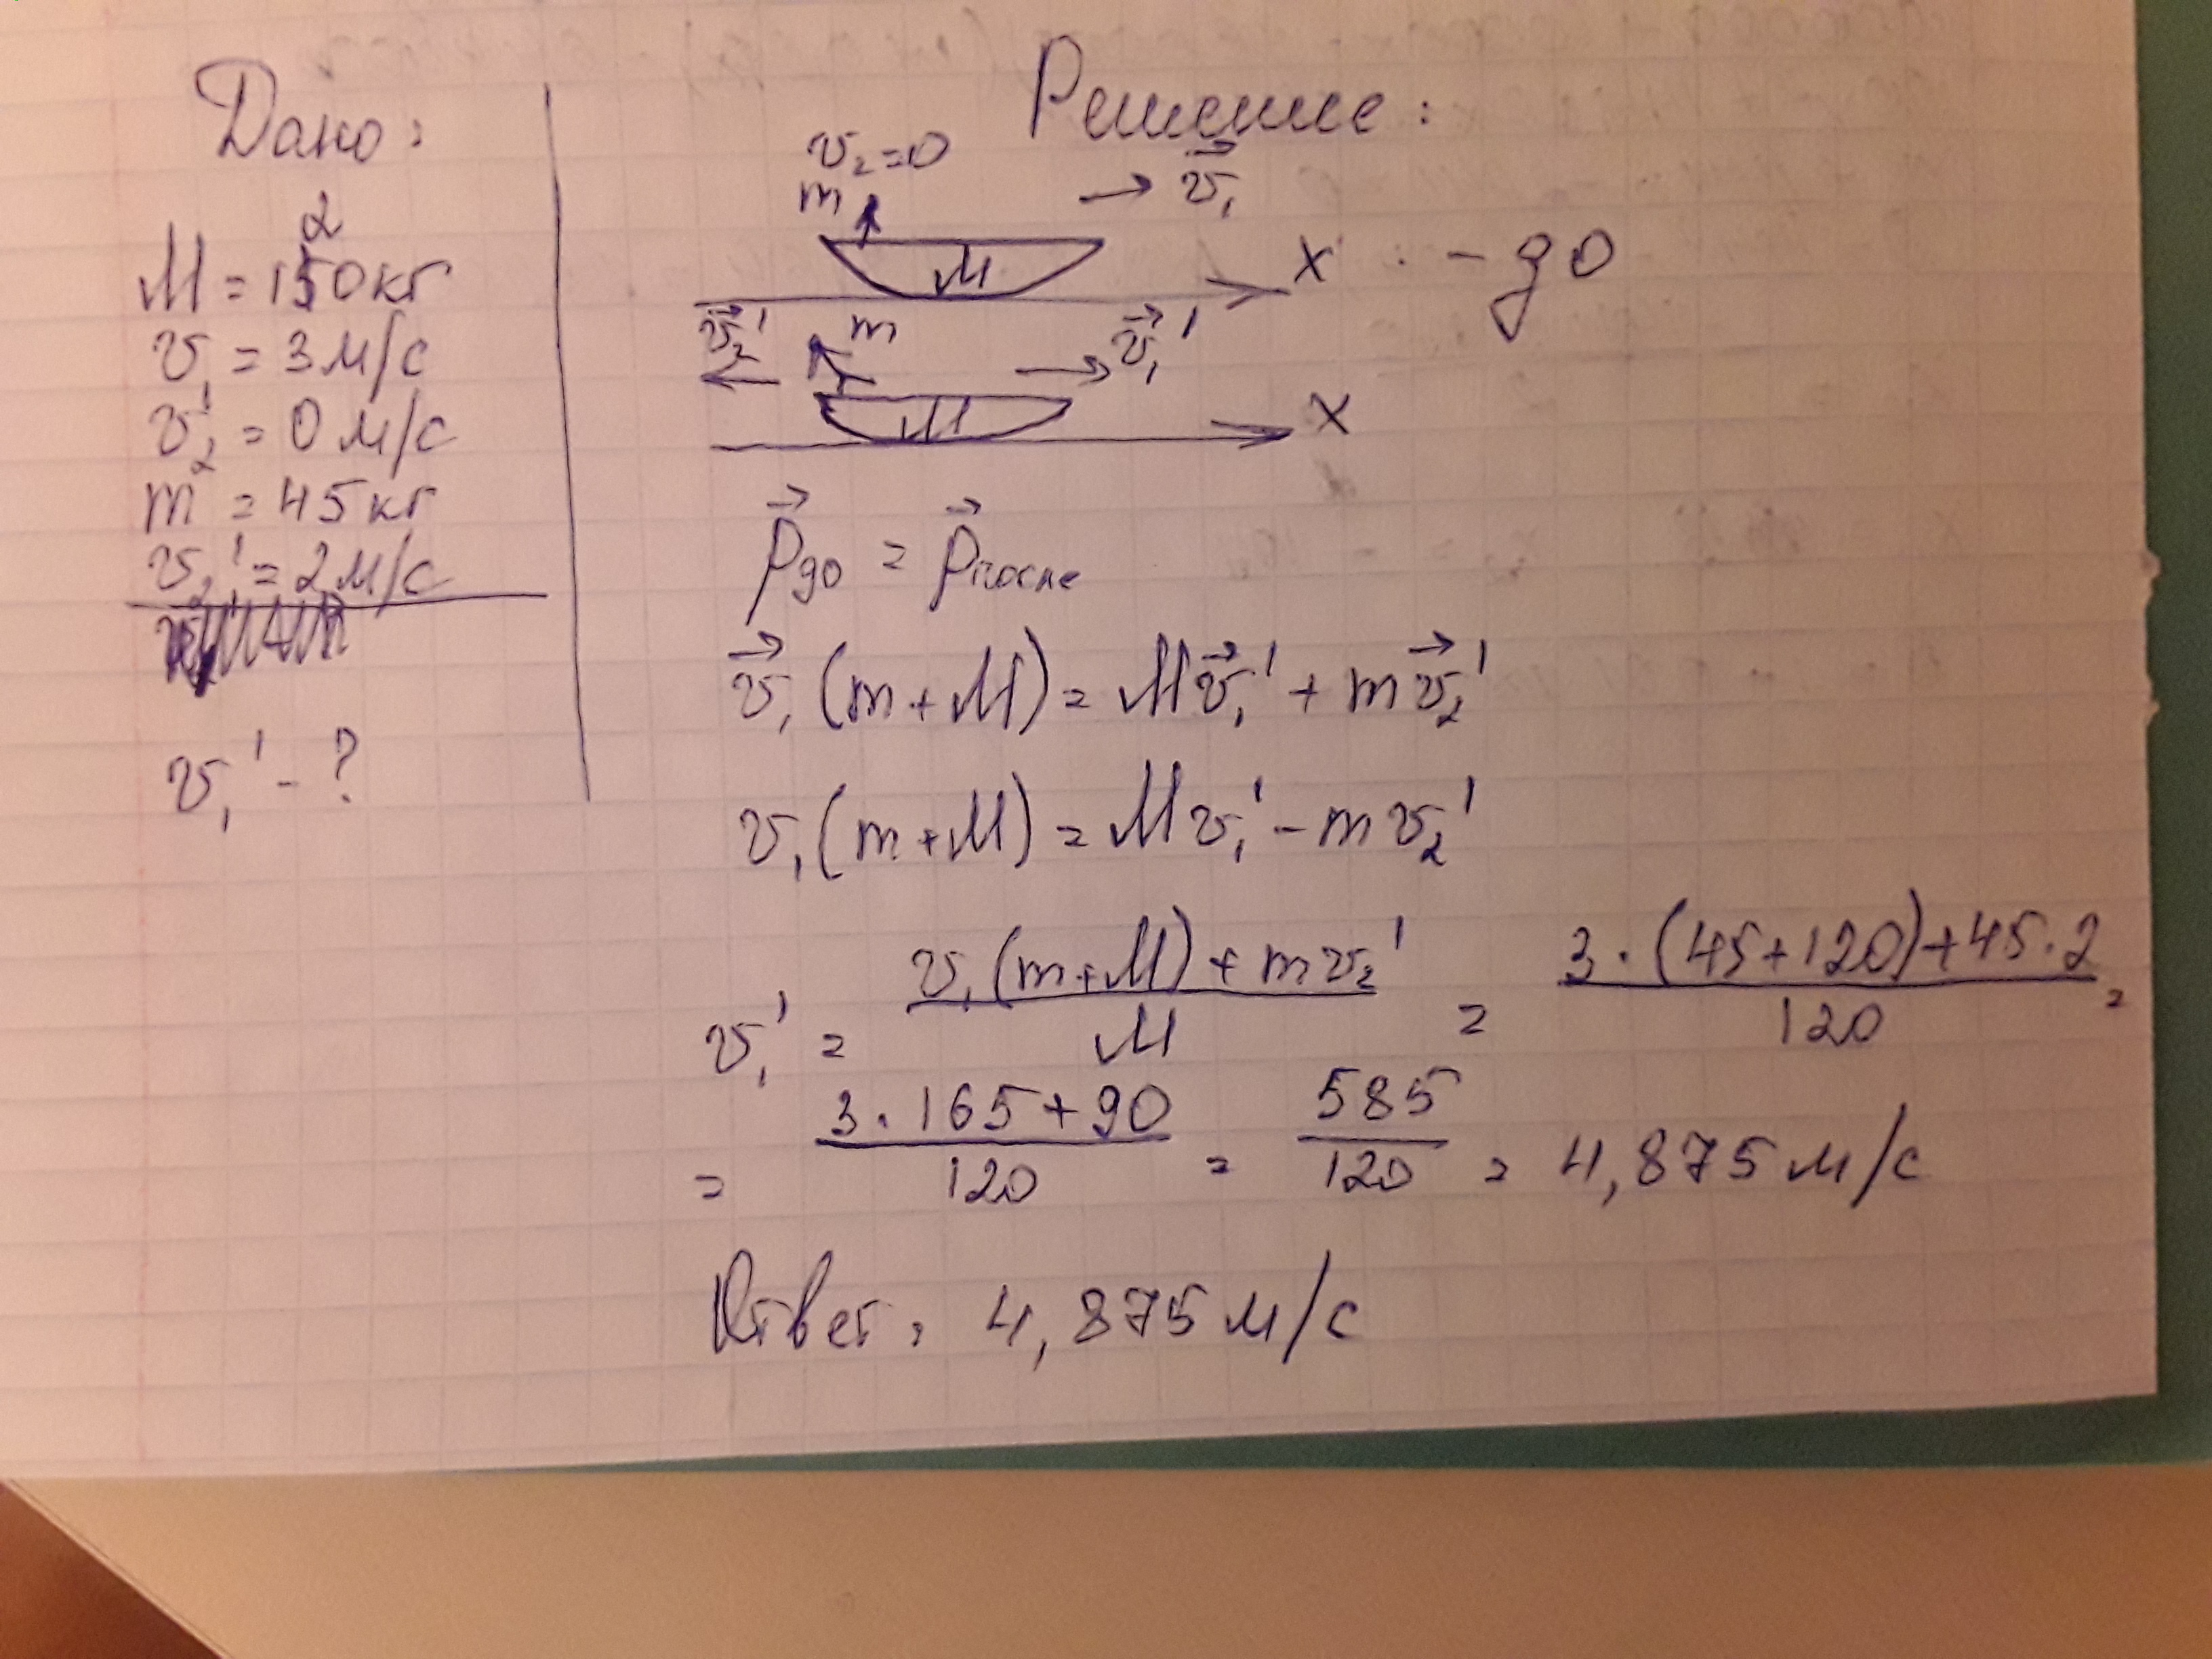 Дано:
M = 120 кг
v₁ = 3 м/с
v₂ = 0 м/с
m = 45 кг
v₂' = 2 м/с
v₁' - ?
Решение:
v₂ = 0
m
v⃗₁
M
X - до
v⃗₂' m v⃗₁'
M
X
p⃗до = p⃗после
v⃗₁(m+M) = Mv⃗₁' + mv⃗₂'
v₁(m+M) = Mv₁' - mv₂'
v₁' = (v₁(m+M) + mv₂')/M = (3·(45+120)+45·2)/120 =
= (3·165+90)/120 = 585/120 = 4,875 м/с
Ответ: 4,875 м/с